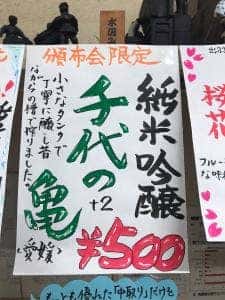 水固
頒布会限定
純米吟醸
千代の亀
+2
小さなタンクで
丁寧に醸し昔
ながらの槽で搾りました。
〈愛媛〉
¥500
もっとも優れた「中取り」だけを
桜
花
フルー
な味